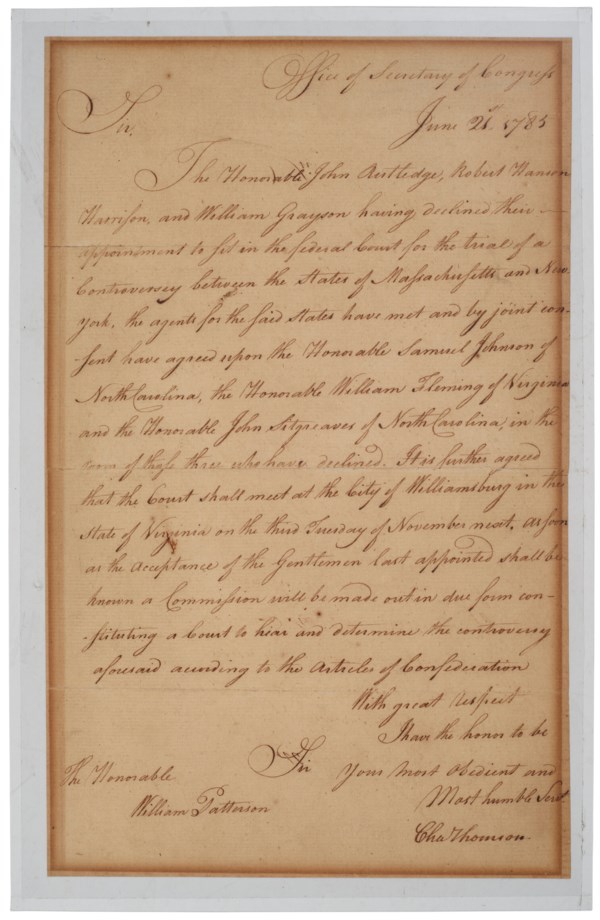 Office of Secretary of Congress
June 21st. 1785
Sir,
The Honorable John Rutledge, Robert Hanson
Harrison, and William Grayson having declined their
appointment to sit in the federal Court for the trial of a
Controversey between the States of Massachusetts and New
York, the agents for the said States have met and by joint con-
sent have agreed upon the Honorable Samuel Johnson of
North Carolina, the Honorable William Fleming of Virginia
and the Honorable John Sitgreaves of North Carolina, in the
room of those three who have declined. It is further agreed
that the Court shall meet at the City of Williamsburg in the
State of Virginia on the third Tuesday of November next. As soon
as the acceptance of the Gentlemen last appointed shall be
known a Commission will be made out in due form con-
stituting a Court to hear and determine the controversy
aforesaid according to the Articles of Confederation
With great Respect
I have the honor to be
Sir Your Most Obedient and
Most humble Servt.
Cha Thomson
The Honorable
William Patterson